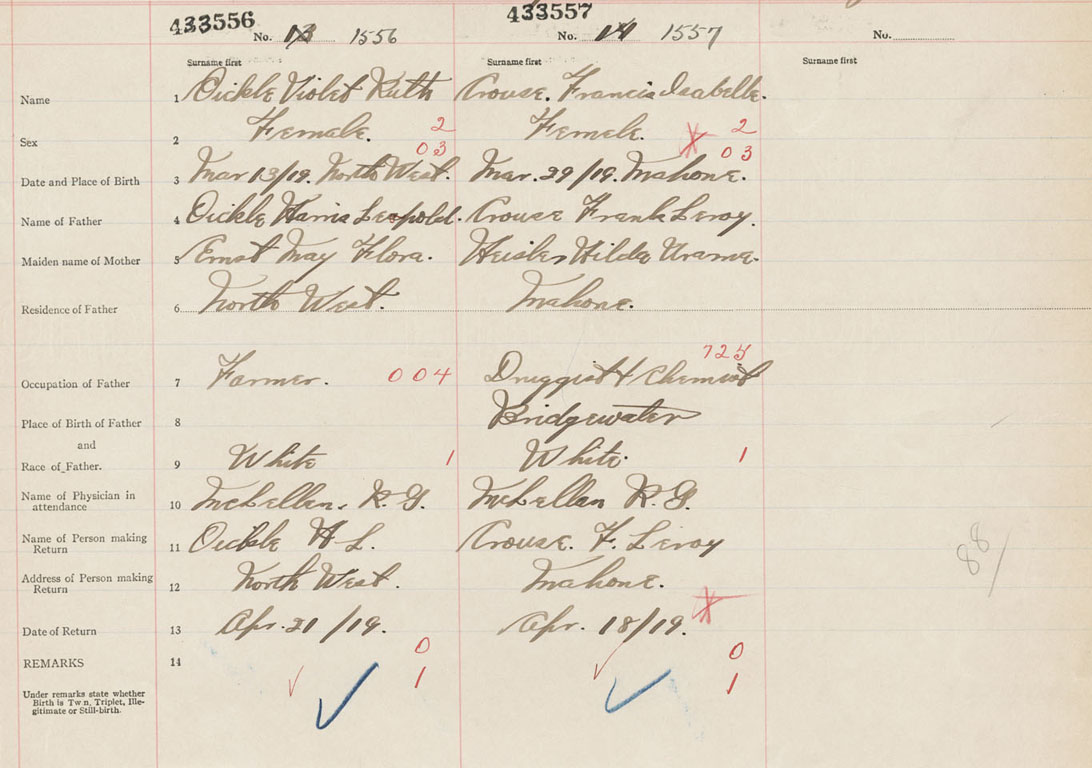 433556 433557
No. 13 1556 No. 14 1557 No.
Surname first Surname first Surname first
Name 1 Oickle Violet Ruth Crouse. Francis Isabelle.
Sex 2 Female. 2 Female. 2
03 03
Date and Place of Birth 3 Mar 13/19. North West. Mar. 29/19. Mahone.
Name of Father 4 Oickle Harris Leopold. Crouse Frank Leroy.
Maiden name of Mother 5 Ernst May Flora. Heisler Hilda Urama.
Residence of Father 6 North West. Mahone.
725
Occupation of Father 7 Farmer. 004 Druggist & Chemist
Place of Birth of Father 8 Bridgewater
and
Race of Father. 9 White 1 White. 1
Name of Physician in
attendance 10 McLellan, R. G. McLellan R. G.
Name of Person making
Return 11 Oickle H L. Crouse. F. Leroy
88/
Address of Person making
Return 12 North West. Mahone.
Date of Return 13 Apr. 21/19. Apr. 18/19.
0 0
REMARKS 14
1 1
Under remarks state whether
Birth is Twn, Triplet, Ille-
gitimate or Still-birth.